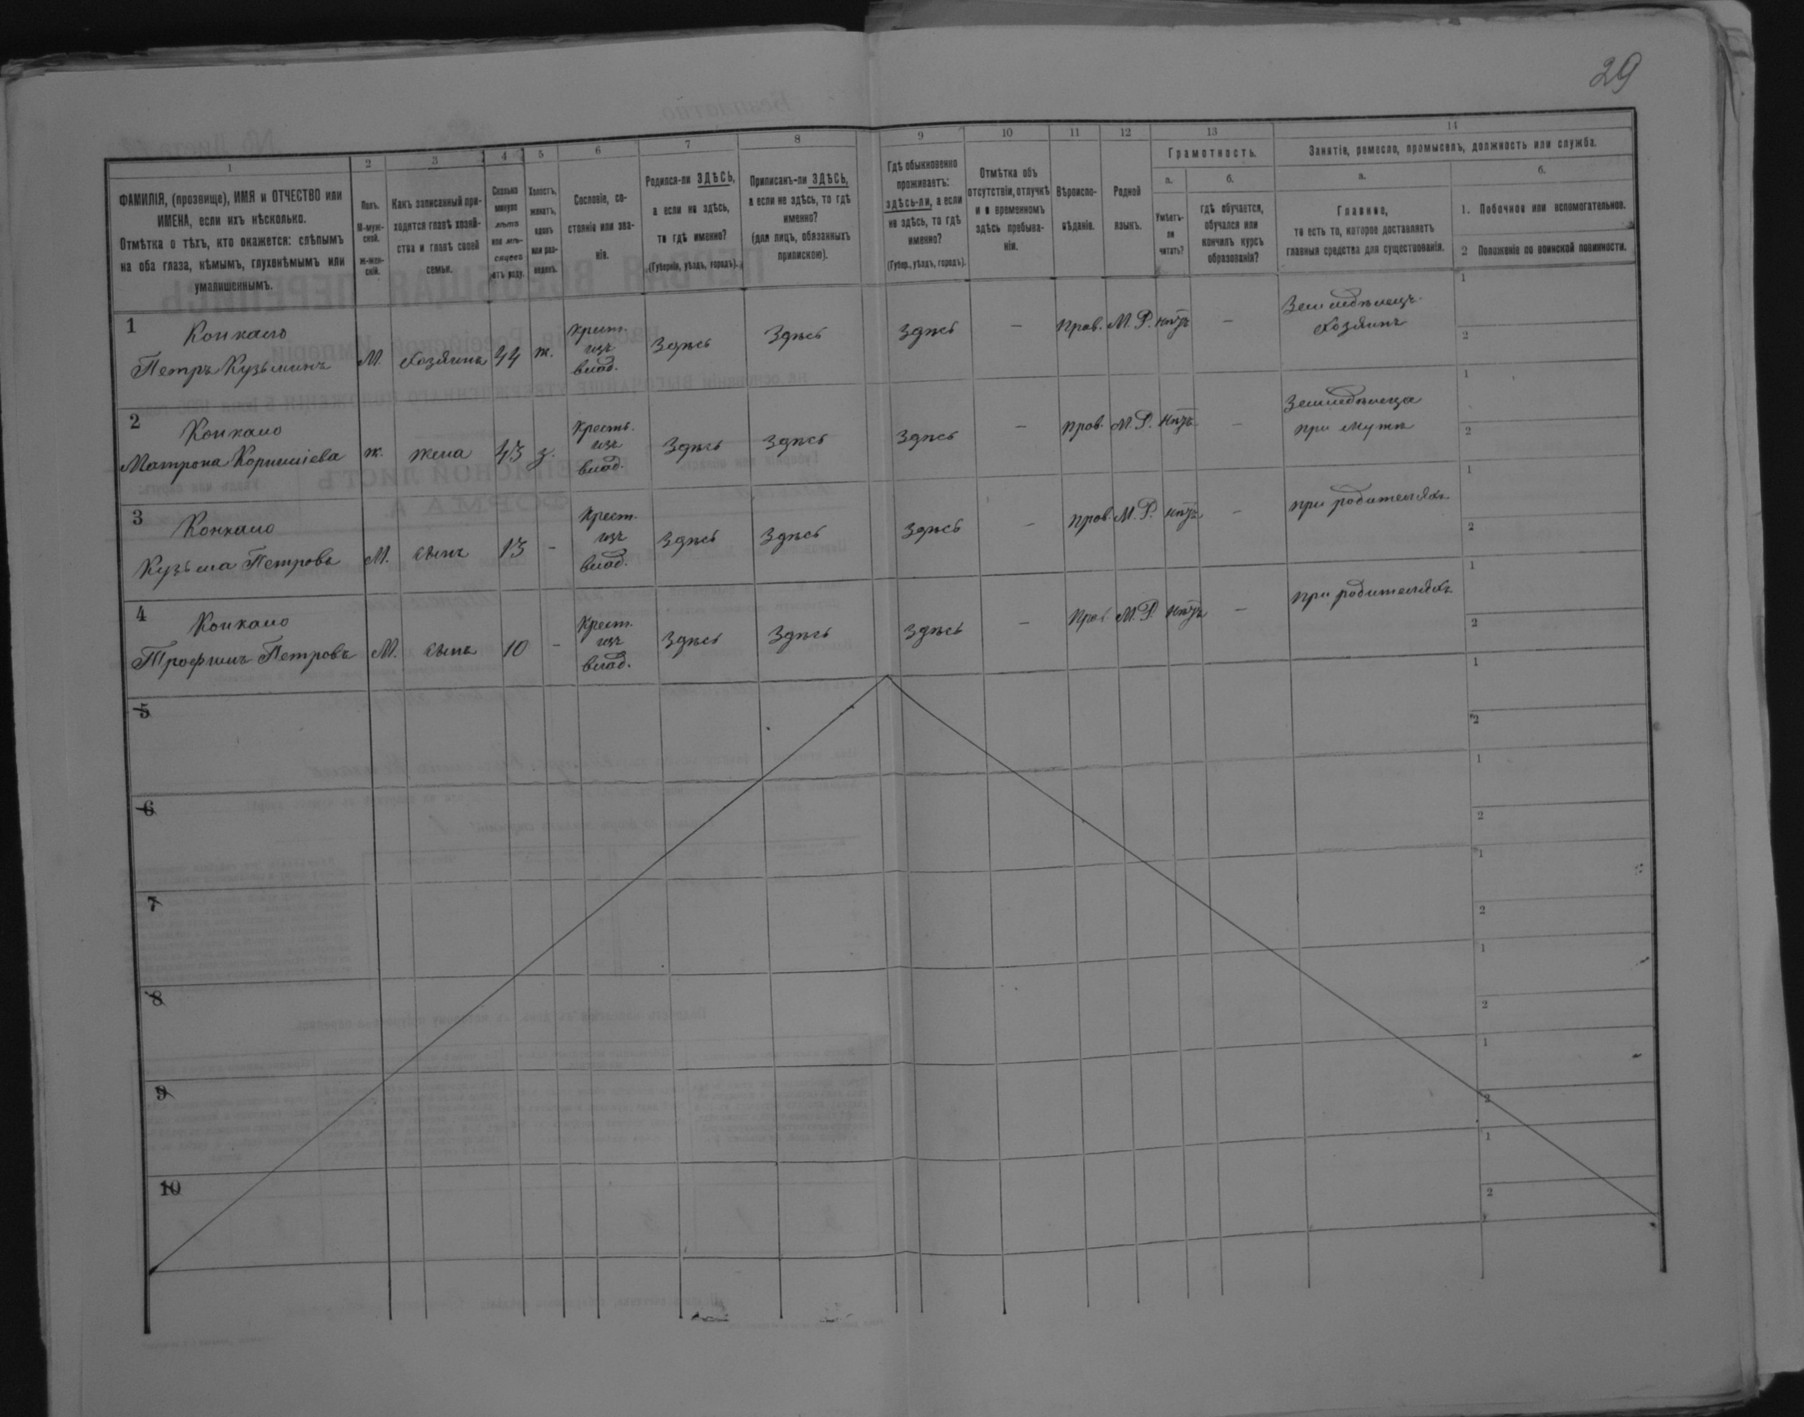 29
1
2
3
4
5
6
7
8
9
10
11
12
13
14
ФАМИЛІЯ, (прозвище), ИМЯ и ОТЧЕСТВО или
ИМЕНА, если ихъ нѣсколько.
Отмѣтка о тѣхъ, кто окажется: слѣпымъ
на оба глаза, нѣмымъ, глухонѣмымъ или
умалишеннымъ.
Полъ.
М-муж-
ской.
Ж-жен-
скій.
Какъ записанный при-
ходится главѣ хозяй-
ства и главѣ своей
семьи.
Сколько
минуло
лѣтъ
или мѣ-
сяцевъ
отъ роду.
Холостъ,
женатъ,
вдовъ
или раз-
веденъ.
Сословіе, со-
стояніе или зва-
ніе.
Родился-ли ЗДѢСЬ,
а если не здѣсь,
то гдѣ именно?
(Губернія, уѣздъ, городъ).
Приписанъ-ли ЗДѢСЬ,
а если не здѣсь, то гдѣ
именно?
(для лицъ, обязанныхъ
припискою).
Гдѣ обыкновенно
проживаетъ:
ЗДѢСЬ-ли, а если
не здѣсь, то гдѣ
именно?
(Губер., уѣздъ, городъ).
Отмѣтка объ
отсутствіи, отлучкѣ
и о временномъ
здѣсь пребыва-
ніи.
Вѣроиспо-
вѣданіе.
Родной
языкъ.
Грамотность.
а.
Умѣетъ-
ли
читать?
б.
гдѣ обучается,
обучался или
кончилъ курсъ
образованія?
Занятіе, ремесло, промыселъ, должность или служба.
а.
Главное,
то есть то, которое доставляетъ
главныя средства для существованія.
б.
1. Побочное или вспомогательное.
2 Положеніе по воинской повинности.
1 Конкало
Петръ Кузьминъ М. Хозяинъ 44 ж. Крест. изъ влад. Здѣсь Здѣсь Здѣсь — Прав. М. Р. нѣтъ — Земледѣлецъ хозяинъ
1
2
2 Конкало
Матрона Корниліева ж. жена 43 з. Кресть. изъ влад. Здѣсь Здѣсь Здѣсь — Прав. М. Р. нѣтъ — Земледѣлица при мужѣ
1
2
3 Конкало
Кузьма Петровъ М. сынъ 13 - Крест. изъ влад. Здѣсь Здѣсь Здѣсь — Прав. М. Р. нѣтъ — при родителяхъ
1
2
4 Конкало
Трофимъ Петровъ М. сынъ 10 - Крест. изъ влад. Здѣсь Здѣсь Здѣсь — Прав. М. Р. нѣтъ — при родителяхъ
1
2
5
1
2
6
1
2
7
1
2
8
1
2
9
1
2
10
1
2